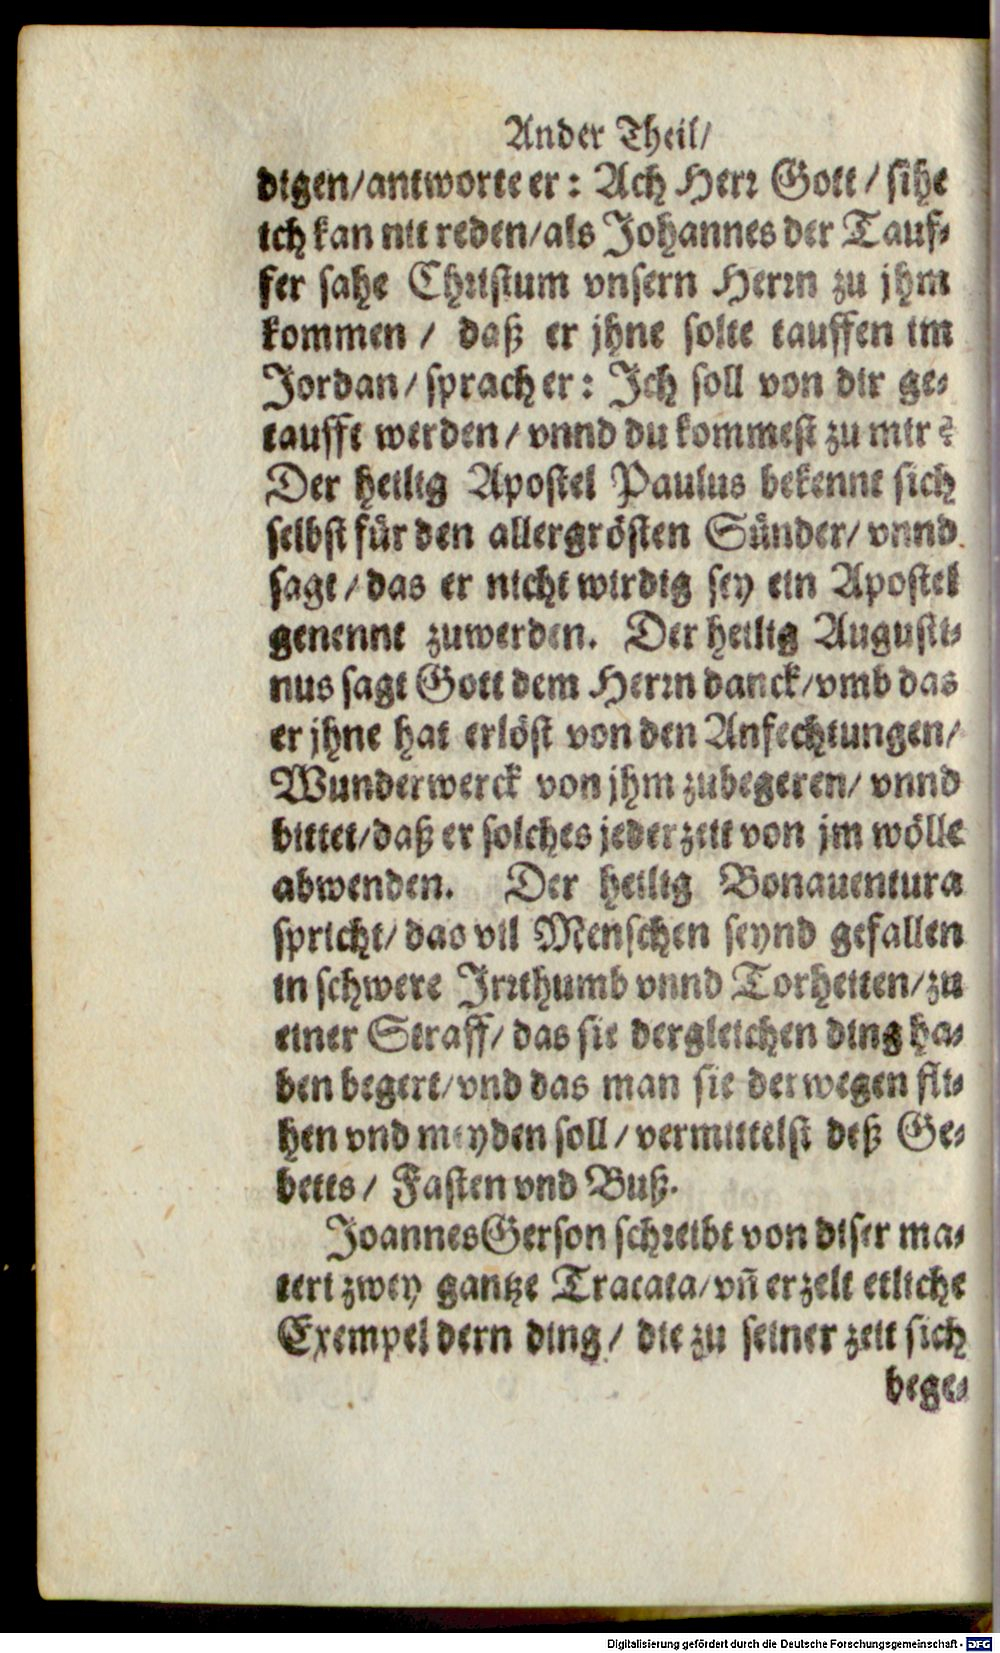 Ander Theil/
digen/antworte er: Ach Herr Gott/ sihe
ich kan nit reden/als Johannes der Tauf-
fer sahe Christum vnsern Herrn zu jhm
kommen / daß er jhne solte tauffen im
Jordan/sprach er: Jch soll von dir ge-
taufft werden/vnnd du kommest zu mir?
Der heilig Apostel Paulus bekennt sich
selbst für den allergrösten Sünder/ vnnd
sagt/das er nicht wirdig sey ein Apostel
genennt zuwerden. Der heilig Augusti-
nus sagt Gott dem Herrn danck/vmb das
er jhne hat erlöst von den Anfechtungen/
Wunderwerck von jhm zubegeren/ vnnd
bittet/daß er solches jederzeit von jm wölle
abwenden. Der heilig Bonauentura
spricht/das vil Menschen seynd gefallen
in schwere Jrrthumb vnnd Torheiten/zu
einer Straff/das sie dergleichen ding ha-
ben begert/vnd das man sie derwegen fli-
hen vnd meyden soll/vermittelst deß Ge-
betts/ Fasten vnd Buß.
Joannes Gerson schreibt von diser ma-
teri zwey gantze Tractata/vñ erzelt etliche
Exempel dern ding/ die zu seiner zeit sich
bege-
Digitalisierung gefördert durch die Deutsche Forschungsgemeinschaft - DFG